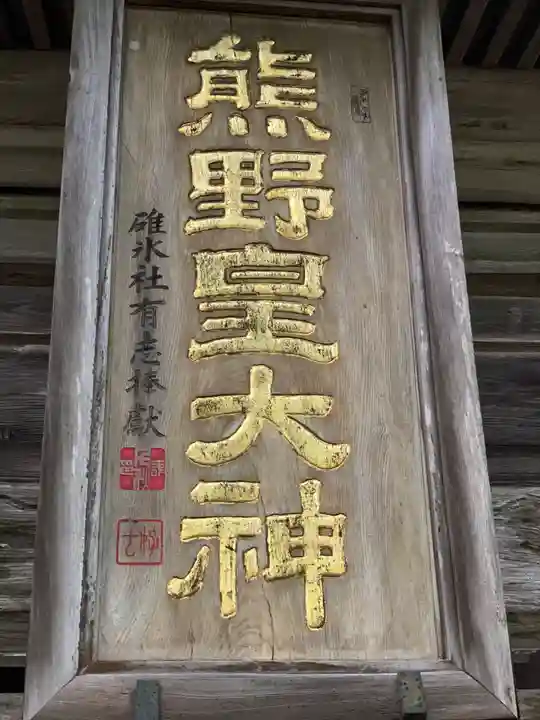 熊野皇大神
碓氷社有志捧献